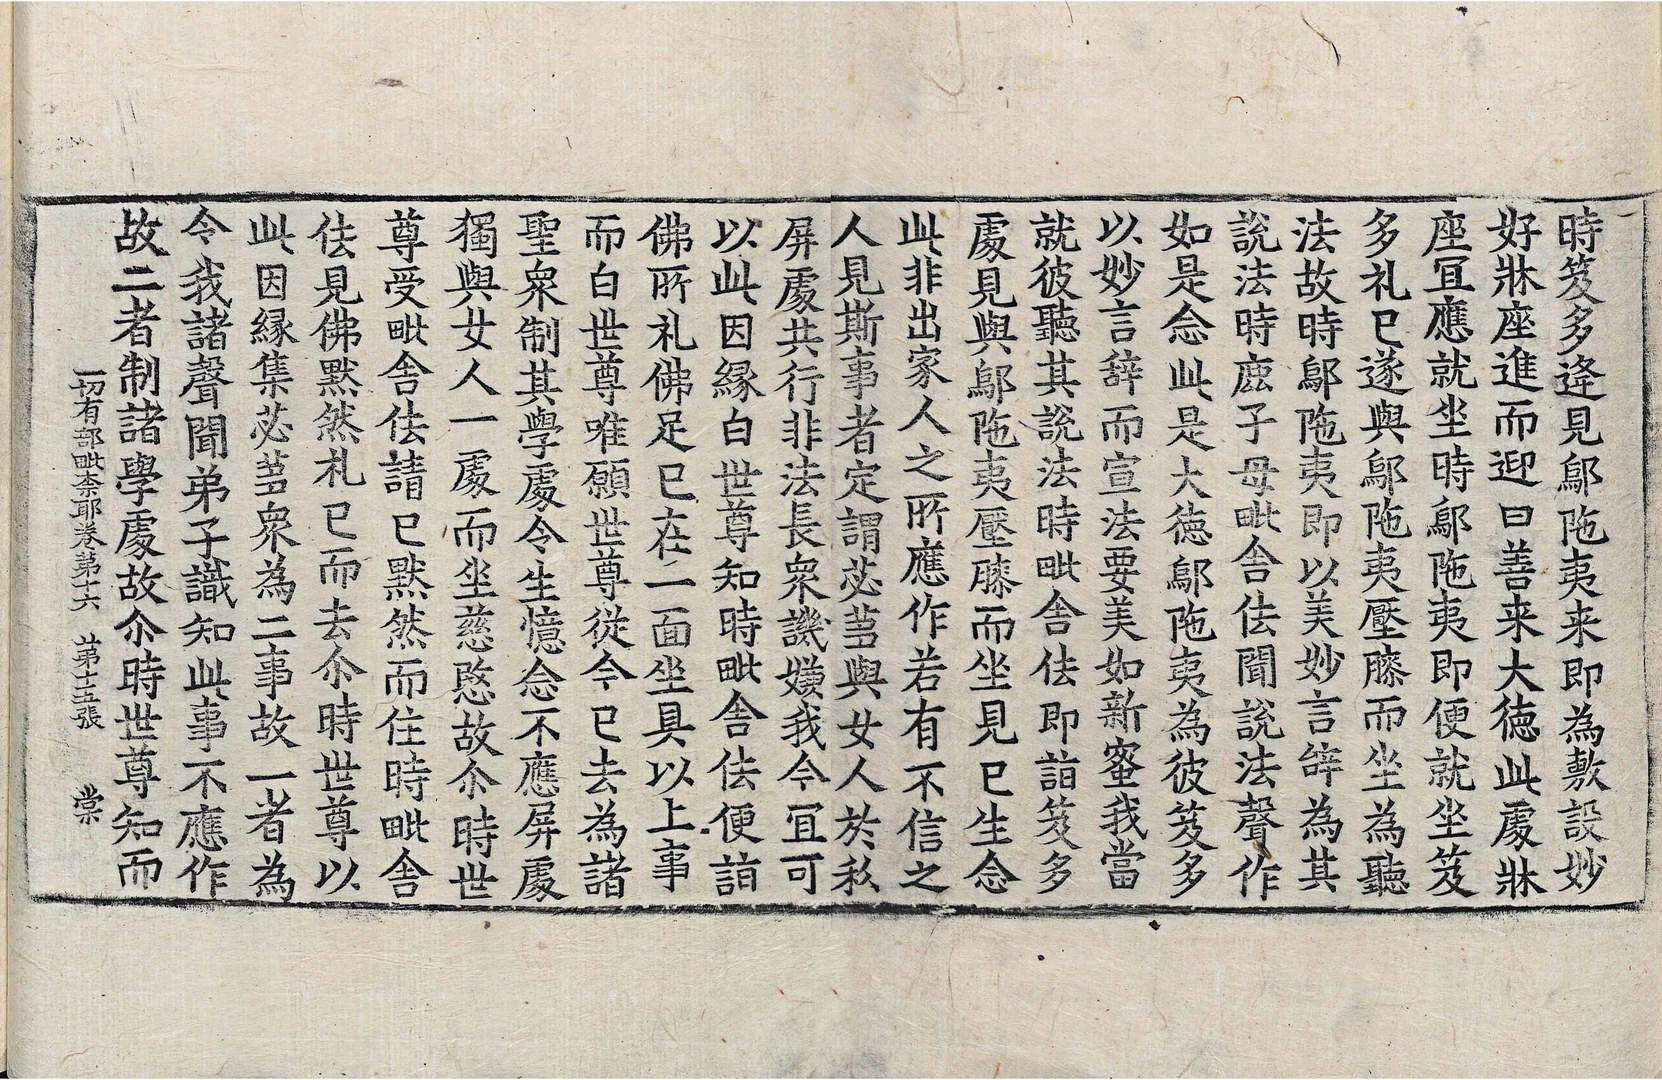 時笈多逄見鄔陁夷来即為敷設妙
好牀座進而迎曰善来大徳此處牀
座冝應就坐時鄔陁夷即便就坐笈
多礼已遂與鄔陁夷壓膝而坐為聽
法故時鄔陁夷即以美妙言辝為其
說法時鹿子母毗舍佉聞說法聲作
如是念此是大徳鄔陁夷為彼笈多
以妙言辝而宣法要美如新蜜我當
就彼聽其說法時毗舍佉即詣笈多
處見與鄔陁夷壓膝而坐見已生念
此非出家人之所應作若有不信之
人見斯事者定謂苾蒭與女人於私
屏處共行非法長衆譏嫌我今冝可
以此因縁白世尊知時毗舍佉便詣
佛所礼佛足已在一面坐具以上事
而白世尊唯願世尊從今已去為諸
聖衆制其學處令生憶念不應屏處
獨與女人一處而坐慈愍故尒時世
尊受毗舍佉請已默然而住時毗舍
佉見佛默然礼已而去尒時世尊以
此因縁集苾蒭衆為二事故一者為
令我諸聲聞弟子識知此事不應作
故二者制諸學處故尒時世尊知而
一切有部毗柰耶卷第十六 第十五張 棠